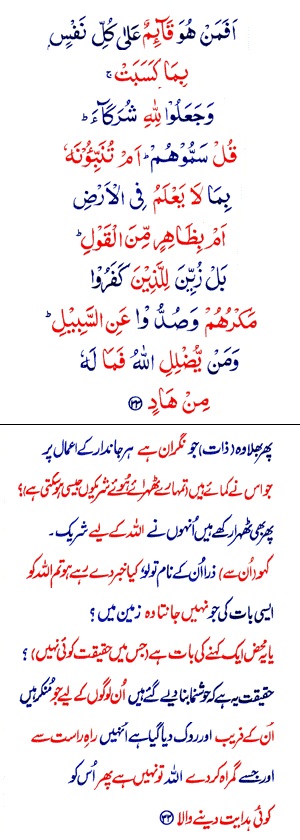 اَفَمَنْ هُوَ قَآئِمٌ عَلٰى كُلِّ نَفْسٍۭ
بِمَا كَسَبَتْ ۚ
وَجَعَلُوْا لِلّٰهِ شُرَكَآءَ ؕ
قُلْ سَمُّوْهُمْ ؕ اَمْ تُنَبِّـُٔوْنَهٗ
بِمَا لَا يَعْلَمُ فِى الْاَرْضِ
اَمْ بِظَاهِرٍ مِّنَ الْقَوْلِ ؕ
بَلْ زُيِّنَ لِلَّذِيْنَ كَفَرُوْا
مَكْرُهُمْ وَصُدُّوْا عَنِ السَّبِيْلِ ؕ
وَمَنْ يُّضْلِلِ اللّٰهُ فَمَا لَهٗ
مِنْ هَادٍ ۳۳
پھر بھلا وہ (ذات) جو نگران ہے ہر جاندار کے اعمال پر
جو اس نے کمائے ہیں (تمہارے ٹھہرائے ہُوئے شریکوں جیسی ہو سکتی ہے)؟
پھر بھی ٹھہرا رکھے ہیں اُنہوں نے اللہ کے لیے شریک۔
کہو (اُن سے) ذرا اُن کے نام تو لو؟ کیا خبر دے رہے ہو تم اللہ کو
ایسی بات کی جو نہیں جانتا وہ زمین میں؟
یا یہ محض ایک کہنے کی بات ہے (جس میں حقیقت کوئی نہیں)؟
حقیقت یہ ہے کہ خوشنما بنا دیے گئے ہیں اُن لوگوں کے لیے جو مُنکر ہیں
اُن کے فریب اور روک دیا گیا ہے اُنہیں راہِ راست سے
اور جسے گمراہ کر دے اللہ تو نہیں ہے پھر اُس کو
کوئی ہدایت دینے والا ۳۳